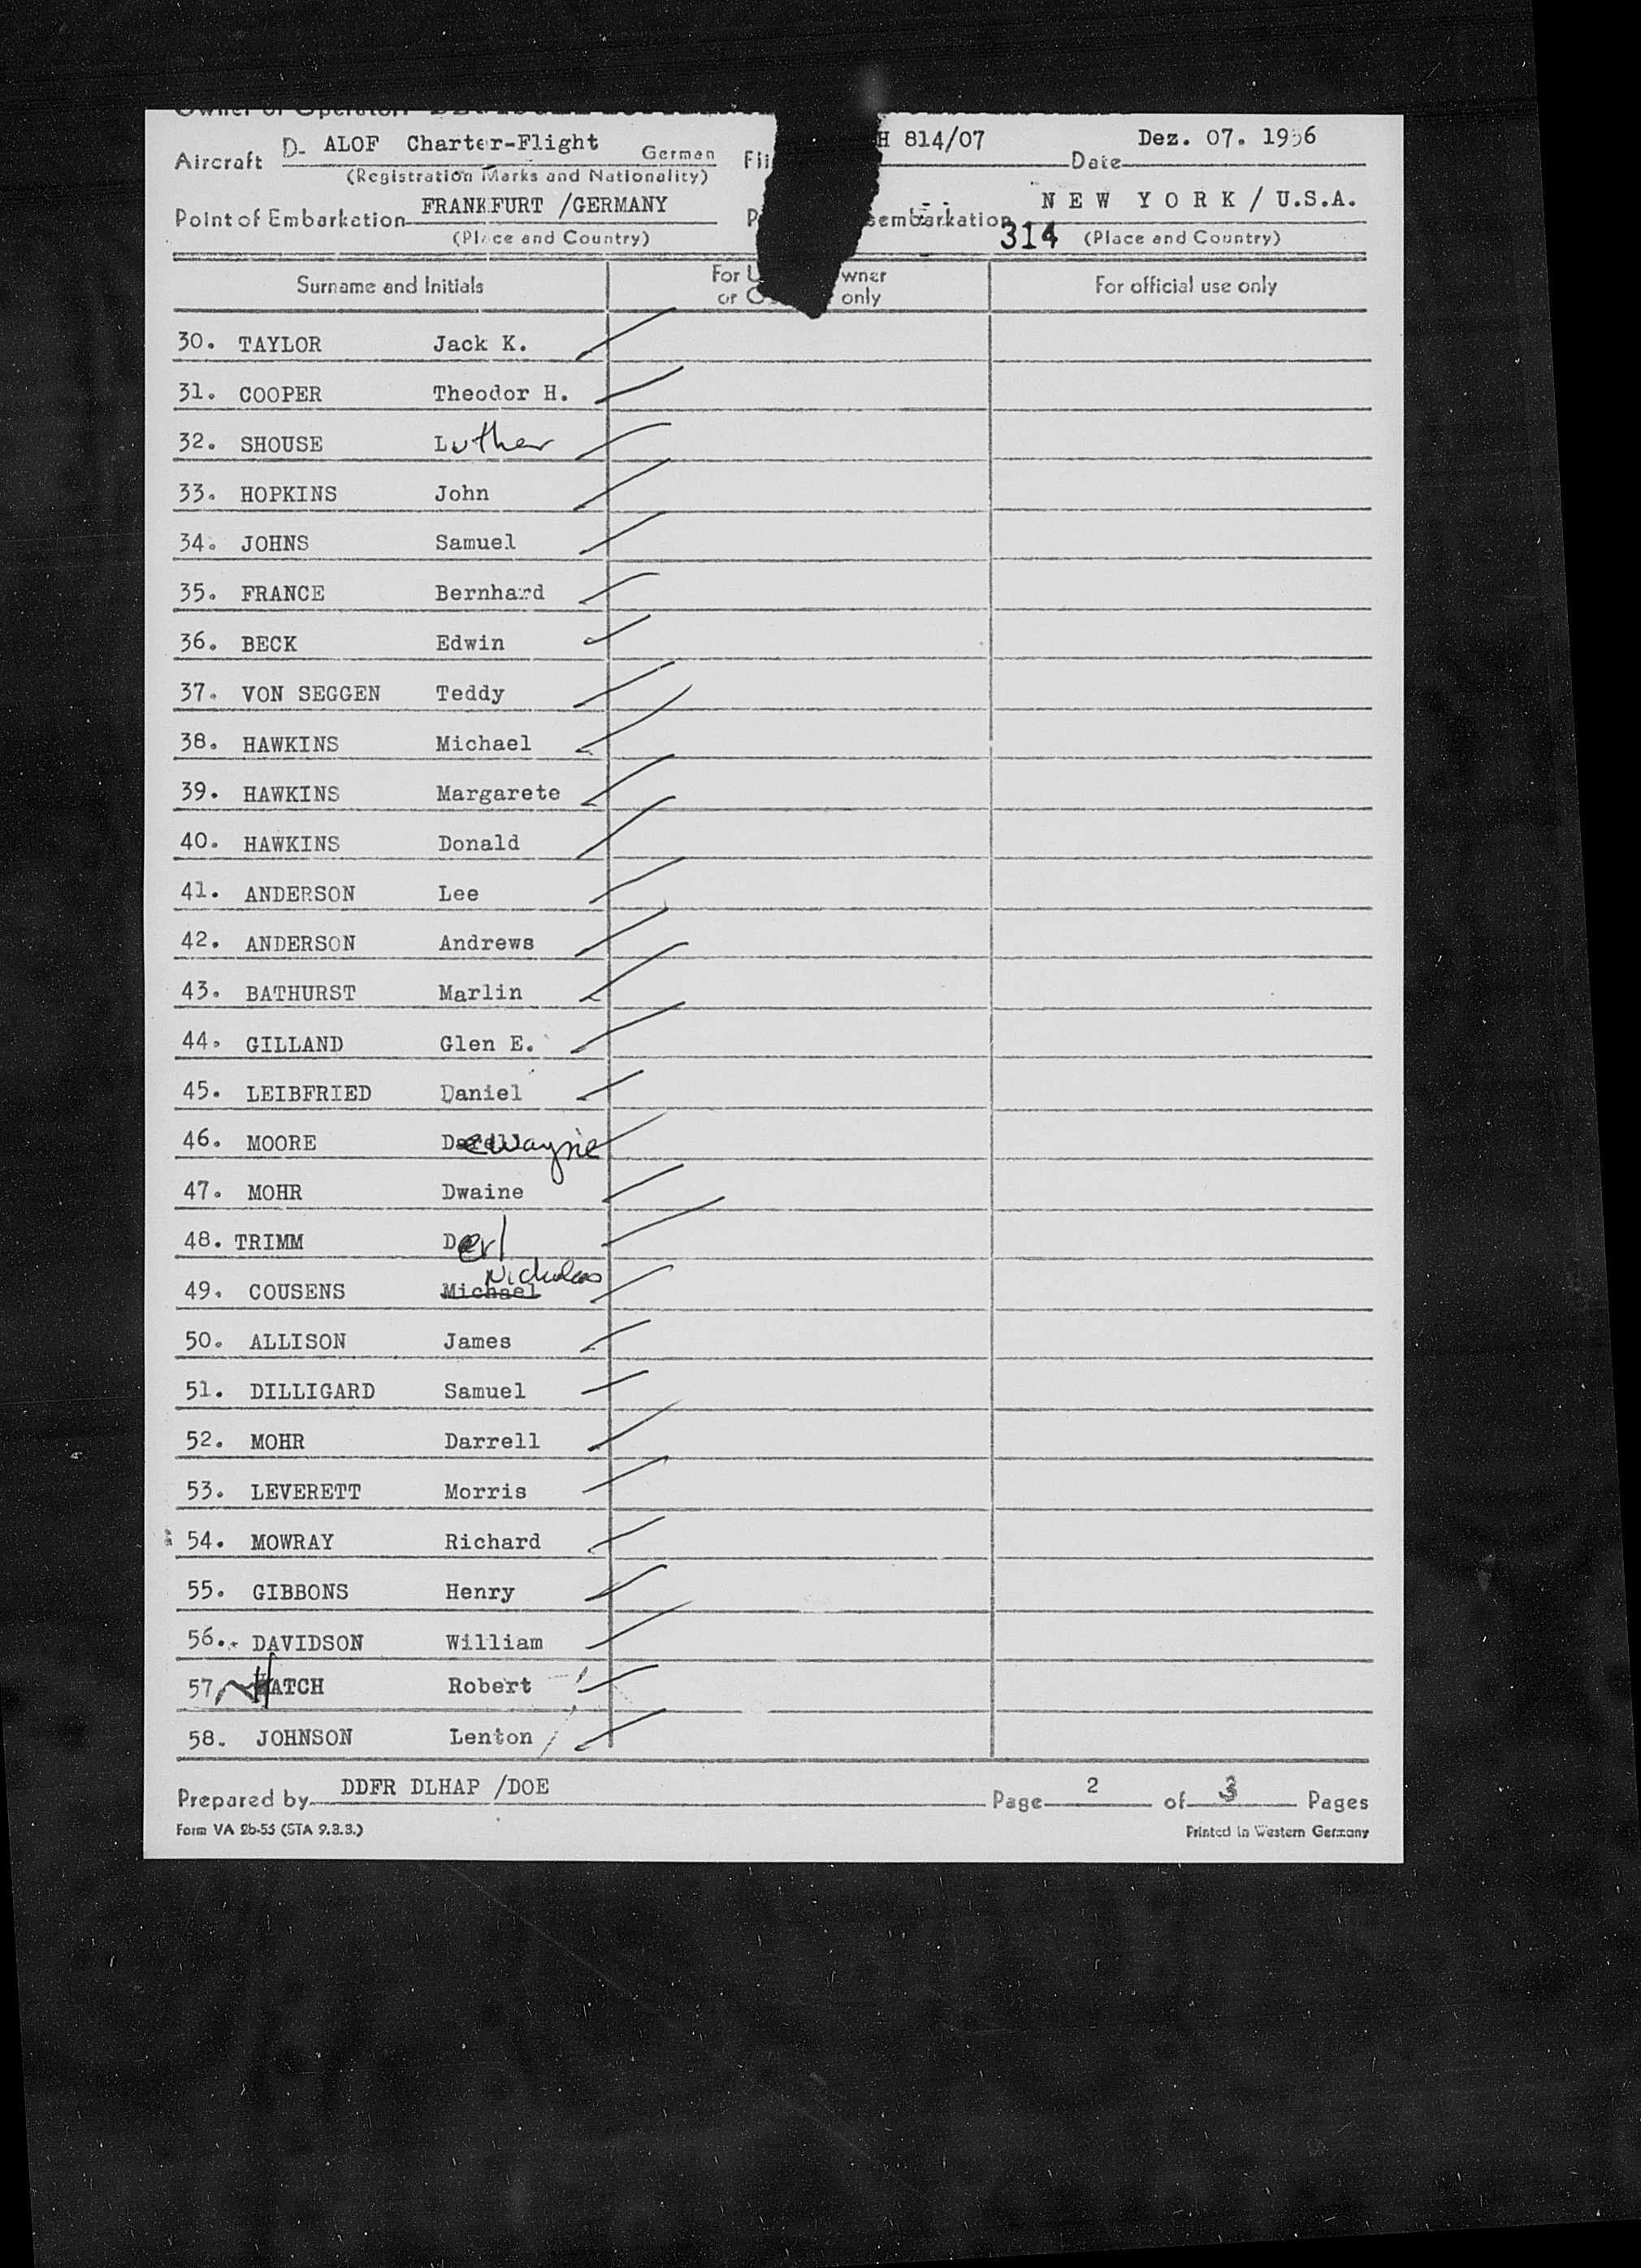 Owner or Operator
Aircraft D- ALOF Charter-Flight German H 814/07 Date Dez. 07. 1956
(Registration Marks and Nationality)
Point of Embarkation FRANKFURT /GERMANY sembarkation NEW YORK / U.S.A.
(Place and Country) 314 (Place and Country)
Surname and Initials For wner or only For official use only
30. TAYLOR Jack K.
31. COOPER Theodor H.
32. SHOUSE Luther
33. HOPKINS John
34. JOHNS Samuel
35. FRANCE Bernhard
36. BECK Edwin
37. VON SEGGEN Teddy
38. HAWKINS Michael
39. HAWKINS Margarete
40. HAWKINS Donald
41. ANDERSON Lee
42. ANDERSON Andrews
43. BATHURST Marlin
44. GILLAND Glen E.
45. LEIBFRIED Daniel
46. MOORE Dewayne
47. MOHR Dwaine
48. TRIMM Derl
49. COUSENS Michael Nicholas
50. ALLISON James
51. DILLIGARD Samuel
52. MOHR Darrell
53. LEVERETT Morris
54. MOWRAY Richard
55. GIBBONS Henry
56. DAVIDSON William
57 HATCH Robert
58. JOHNSON Lenton
Prepared by DDFR DLHAP /DOE Page 2 of 3 Pages
Form VA 2b-55 (STA 9.3.3.) Printed in Western Germany